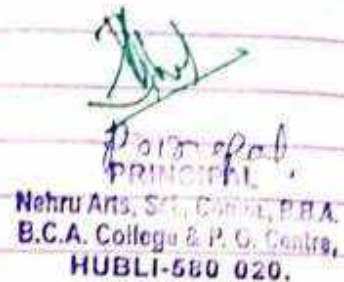 Principal.
PRINCIPAL
Nehru Arts, Sci, Comm, B.B.A.
B.C.A. College & P. G. Centre,
HUBLI-580 020.